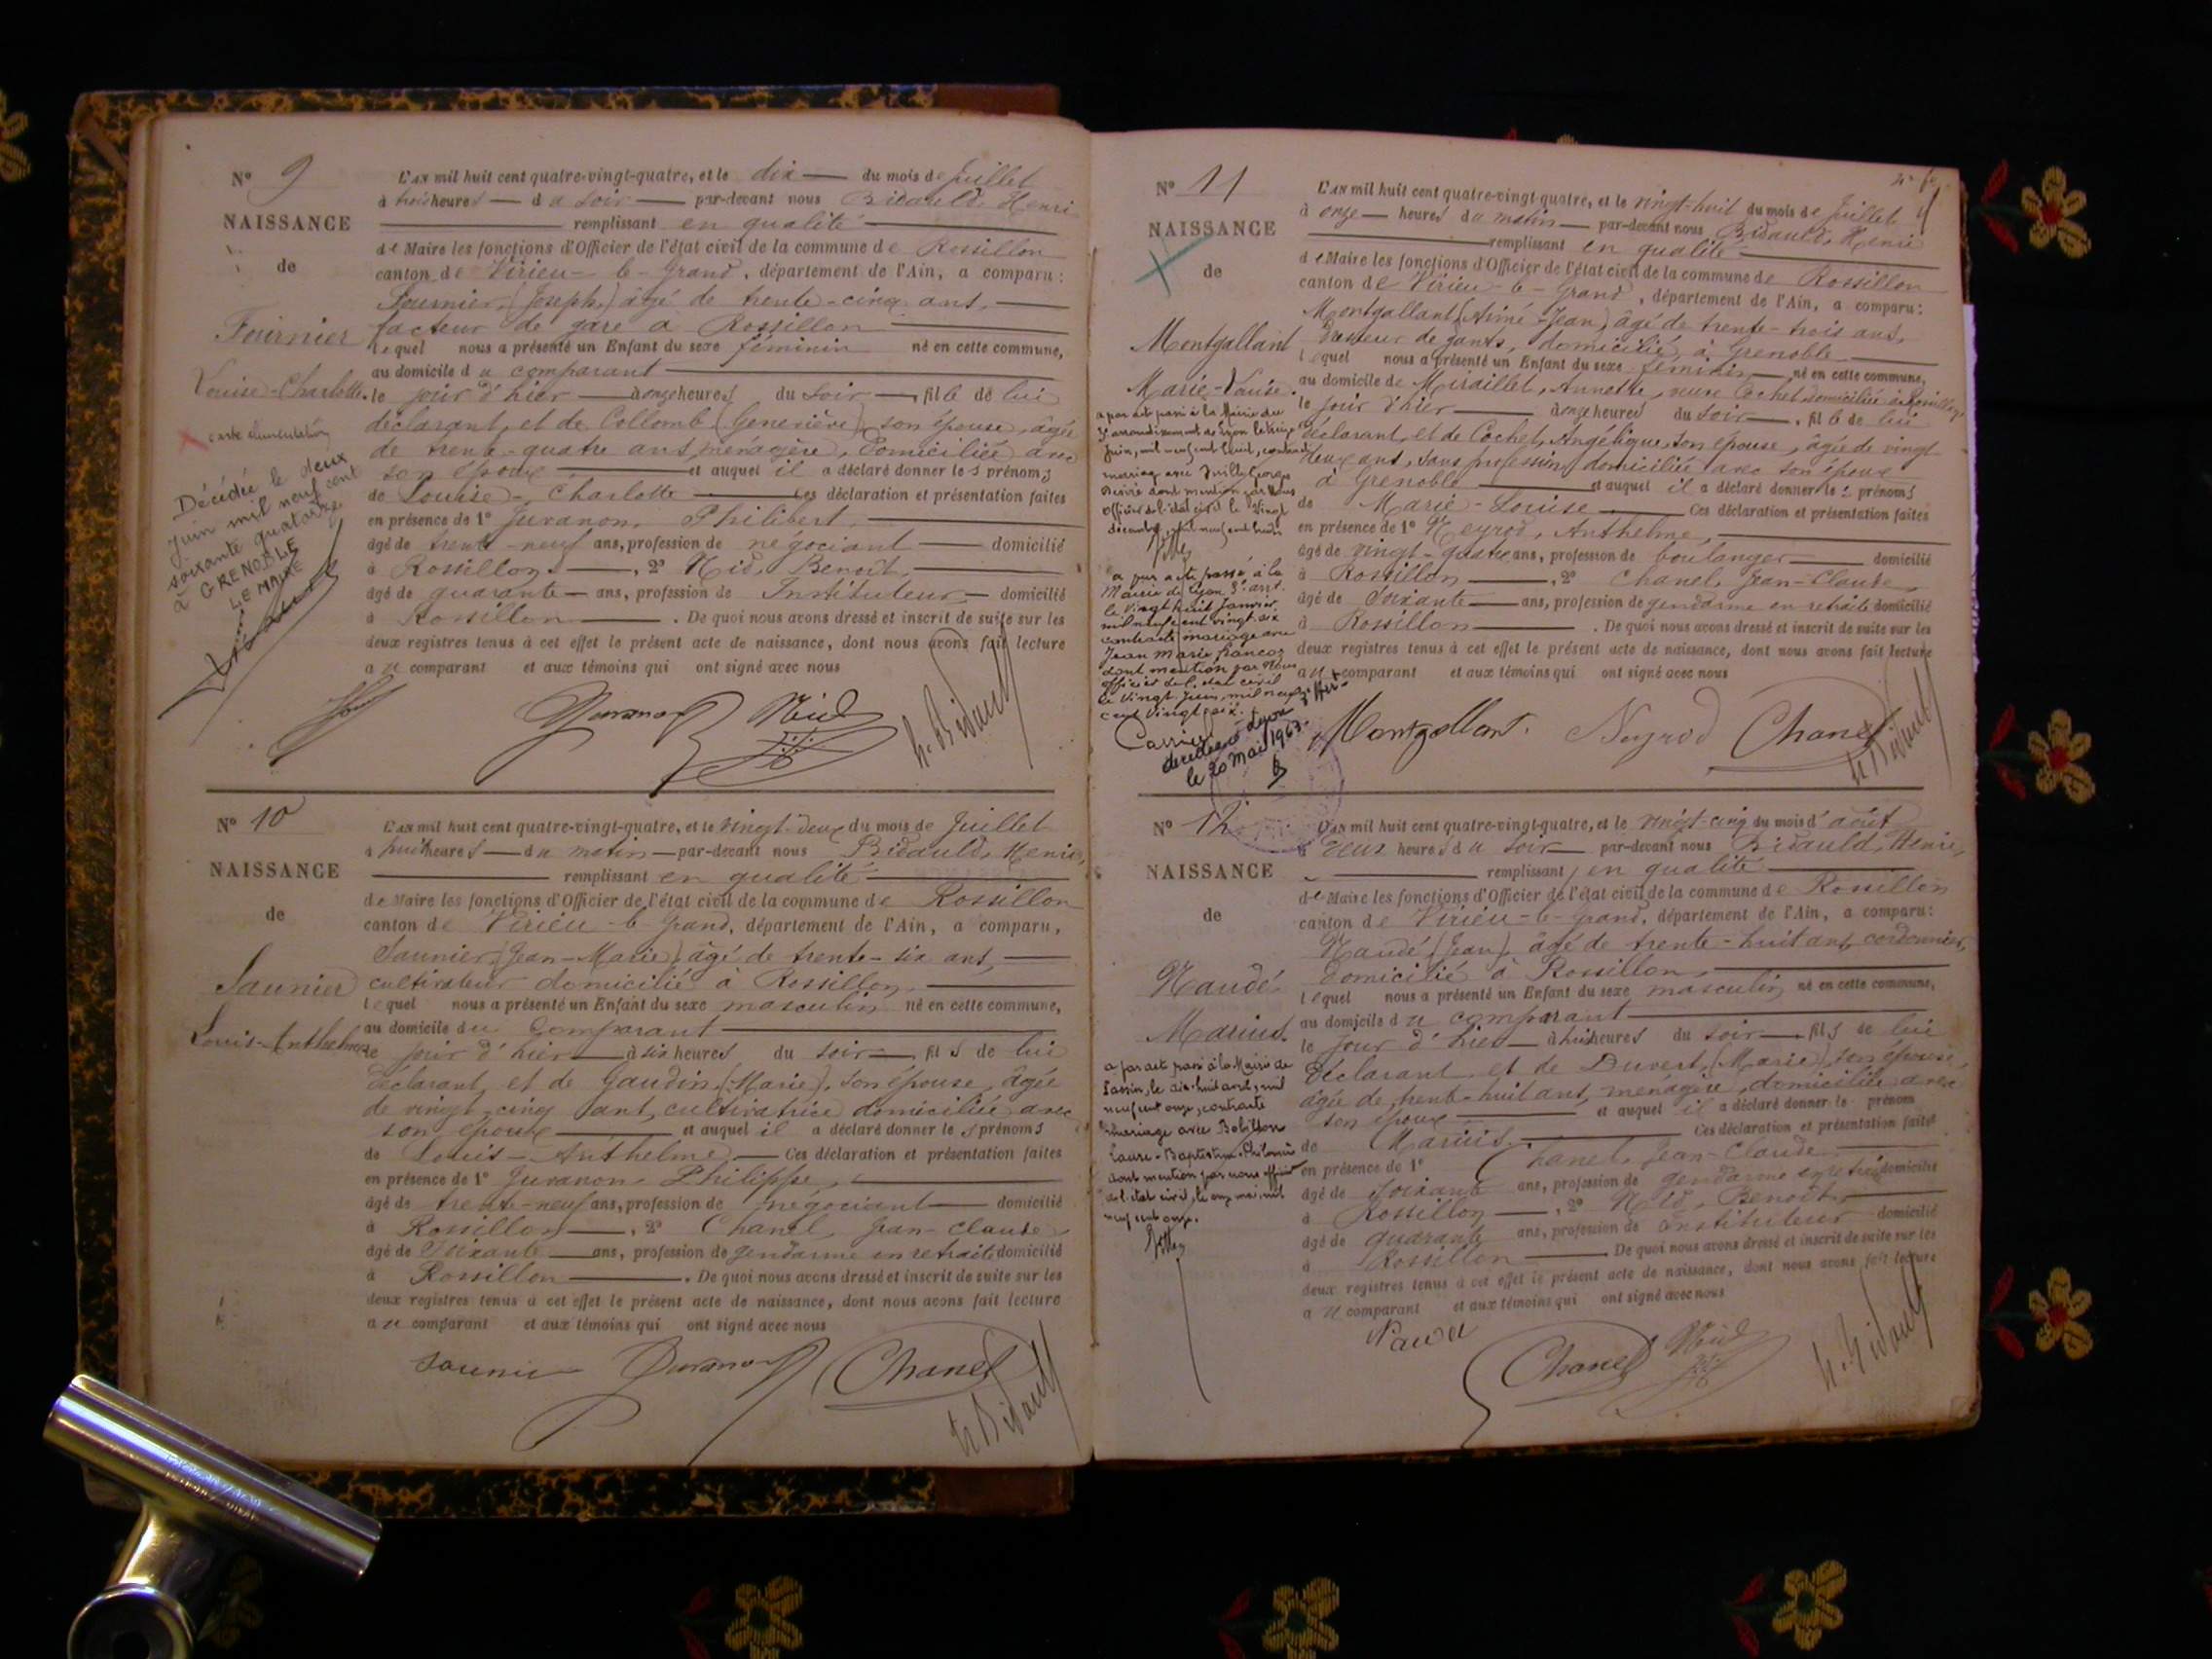 N° 9
NAISSANCE
de
Fournier
Louise-Charlotte.
carte alimentation
Décédée le deux
juin mil neuf cent
soixante quatorze
à GRENOBLE
LE MAIRE
L'AN mil huit cent quatre-vingt-quatre, et le dix du mois de juillet
à trois heures du soir par-devant nous Bidauld, Henri
remplissant en qualité
de Maire les fonctions d'Officier de l'état civil de la commune de Rossillon
canton de Virieu-le-Grand, département de l'Ain, a comparu :
Fournier, (Joseph) âgé de trente-cinq ans,
facteur de gare à Rossillon
lequel nous a présenté un Enfant du sexe féminin né en cette commune,
au domicile du comparant
le jour d'hier à onze heures du soir, fille de lui
déclarant, et de Collomb (Geneviève), son épouse, âgée
de trente-quatre ans, ménagère, domiciliée avec
son époux et auquel il a déclaré donner les prénoms
de Louise-Charlotte Ces déclaration et présentation faites
en présence de 1° Juvanon, Philibert,
âgé de trente-neuf ans, profession de négociant domicilié
à Rossillon, 2° Nid, Benoît,
âgé de quarante ans, profession de Instituteur domicilié
à Rossillon. De quoi nous avons dressé et inscrit de suite sur les
deux registres tenus à cet effet le présent acte de naissance, dont nous avons fait lecture
au comparant et aux témoins qui ont signé avec nous
Juvanon Nid
h. Bidauld
N° 10
NAISSANCE
de
Saunier
Louis-Anthelme
L'AN mil huit cent quatre-vingt-quatre, et le vingt-deux du mois de juillet
à huit heures du matin par-devant nous Bidauld, Henri,
remplissant en qualité
de Maire les fonctions d'Officier de l'état civil de la commune de Rossillon
canton de Virieu-le-Grand, département de l'Ain, a comparu,
Saunier, (Jean-Marie), âgé de trente-six ans,
cultivateur domicilié à Rossillon,
lequel nous a présenté un Enfant du sexe masculin né en cette commune,
au domicile du comparant
le jour d'hier à six heures du soir, fils de lui
déclarant, et de Gaudin, (Marie), son épouse, âgée
de vingt-cinq ans, cultivatrice domiciliée avec
son époux et auquel il a déclaré donner les prénoms
de Louis-Anthelme. Ces déclaration et présentation faites
en présence de 1° Juvanon, Philippe,
âgé de trente-neuf ans, profession de négociant domicilié
à Rossillon, 2° Chanel, Jean-Claude,
âgé de soixante ans, profession de gendarme en retraite domicilié
à Rossillon. De quoi nous avons dressé et inscrit de suite sur les
deux registres tenus à cet effet le présent acte de naissance, dont nous avons fait lecture
au comparant et aux témoins qui ont signé avec nous
Saunier Juvanon Chanel
h. Bidauld
N° 11
NAISSANCE
de
Montgallant
Marie-Louise.
a par acte passé à la Mairie du
arrondissement de Lyon le treize
juin, mil neuf cent huit, contracté
mariage avec
dont mention par nous
officier de l'état civil le vingt
décembre, mil neuf cent huit
a par acte passé à la
Mairie de Lyon 3e arrt.
le vingt huit janvier
mil neuf cent vingt six
contracté mariage avec
Jean Marie Francoz
dont mention par Nous
officier de l'état civil
le vingt juin, mil neuf
cent vingt six.
décédée à Lyon
le 20 Mai 1963.
L'AN mil huit cent quatre-vingt-quatre, et le vingt-huit du mois de juillet
à onze heures du matin par-devant nous Bidauld, Henri
remplissant en qualité
de Maire les fonctions d'Officier de l'état civil de la commune de Rossillon
canton de Virieu-le-Grand, département de l'Ain, a comparu :
Montgallant (Aimé-Jean), âgé de trente-trois ans,
de gants, domicilié à Grenoble
lequel nous a présenté un Enfant du sexe féminin né en cette commune,
au domicile de Miraillet, Annette, veuve Cochet, domiciliée à Rossillon,
le jour d'hier à onze heures du soir, fille de lui
déclarant, et de Cochet, Angélique, son épouse, âgée de vingt
deux ans, sans profession, domiciliée avec son époux
à Grenoble et auquel il a déclaré donner les prénoms
de Marie-Louise Ces déclaration et présentation faites
en présence de 1° Neyrod, Anthelme,
âgé de vingt-quatre ans, profession de boulanger domicilié
à Rossillon, 2° Chanel, Jean-Claude,
âgé de soixante ans, profession de gendarme en retraite domicilié
à Rossillon. De quoi nous avons dressé et inscrit de suite sur les
deux registres tenus à cet effet le présent acte de naissance, dont nous avons fait lecture
au comparant et aux témoins qui ont signé avec nous
Montgallant. Neyrod Chanel
h. Bidauld
N° 12
NAISSANCE
de
Naudé
Marius.
a par acte passé à la Mairie de
le dix-huit avril, mil
neuf cent onze, contracté
mariage avec
dont mention par nous officier
de l'état civil, le onze mai, mil
neuf cent onze.
L'AN mil huit cent quatre-vingt-quatre, et le vingt-cinq du mois d'août
à deux heures du soir par-devant nous Bidauld, Henri,
remplissant en qualité
de Maire les fonctions d'Officier de l'état civil de la commune de Rossillon
canton de Virieu-le-Grand, département de l'Ain, a comparu :
Naudé, (Jean), âgé de trente-huit ans, cordonnier,
domicilié à Rossillon,
lequel nous a présenté un Enfant du sexe masculin né en cette commune,
au domicile du comparant
le jour d'hier à huit heures du soir, fils de lui
déclarant et de Duvert, (Marie), son épouse,
âgée de trente-huit ans, ménagère, domiciliée avec
son époux et auquel il a déclaré donner le prénom
de Marius. Ces déclaration et présentation faites
en présence de 1° Chanel, Jean-Claude
âgé de soixante ans, profession de gendarme en retraite domicilié
à Rossillon, 2° Nid, Benoît,
âgé de quarante ans, profession de instituteur domicilié
à Rossillon. De quoi nous avons dressé et inscrit de suite sur les
deux registres tenus à cet effet le présent acte de naissance, dont nous avons fait lecture
au comparant et aux témoins qui ont signé avec nous
Chanel Nid
h. Bidauld